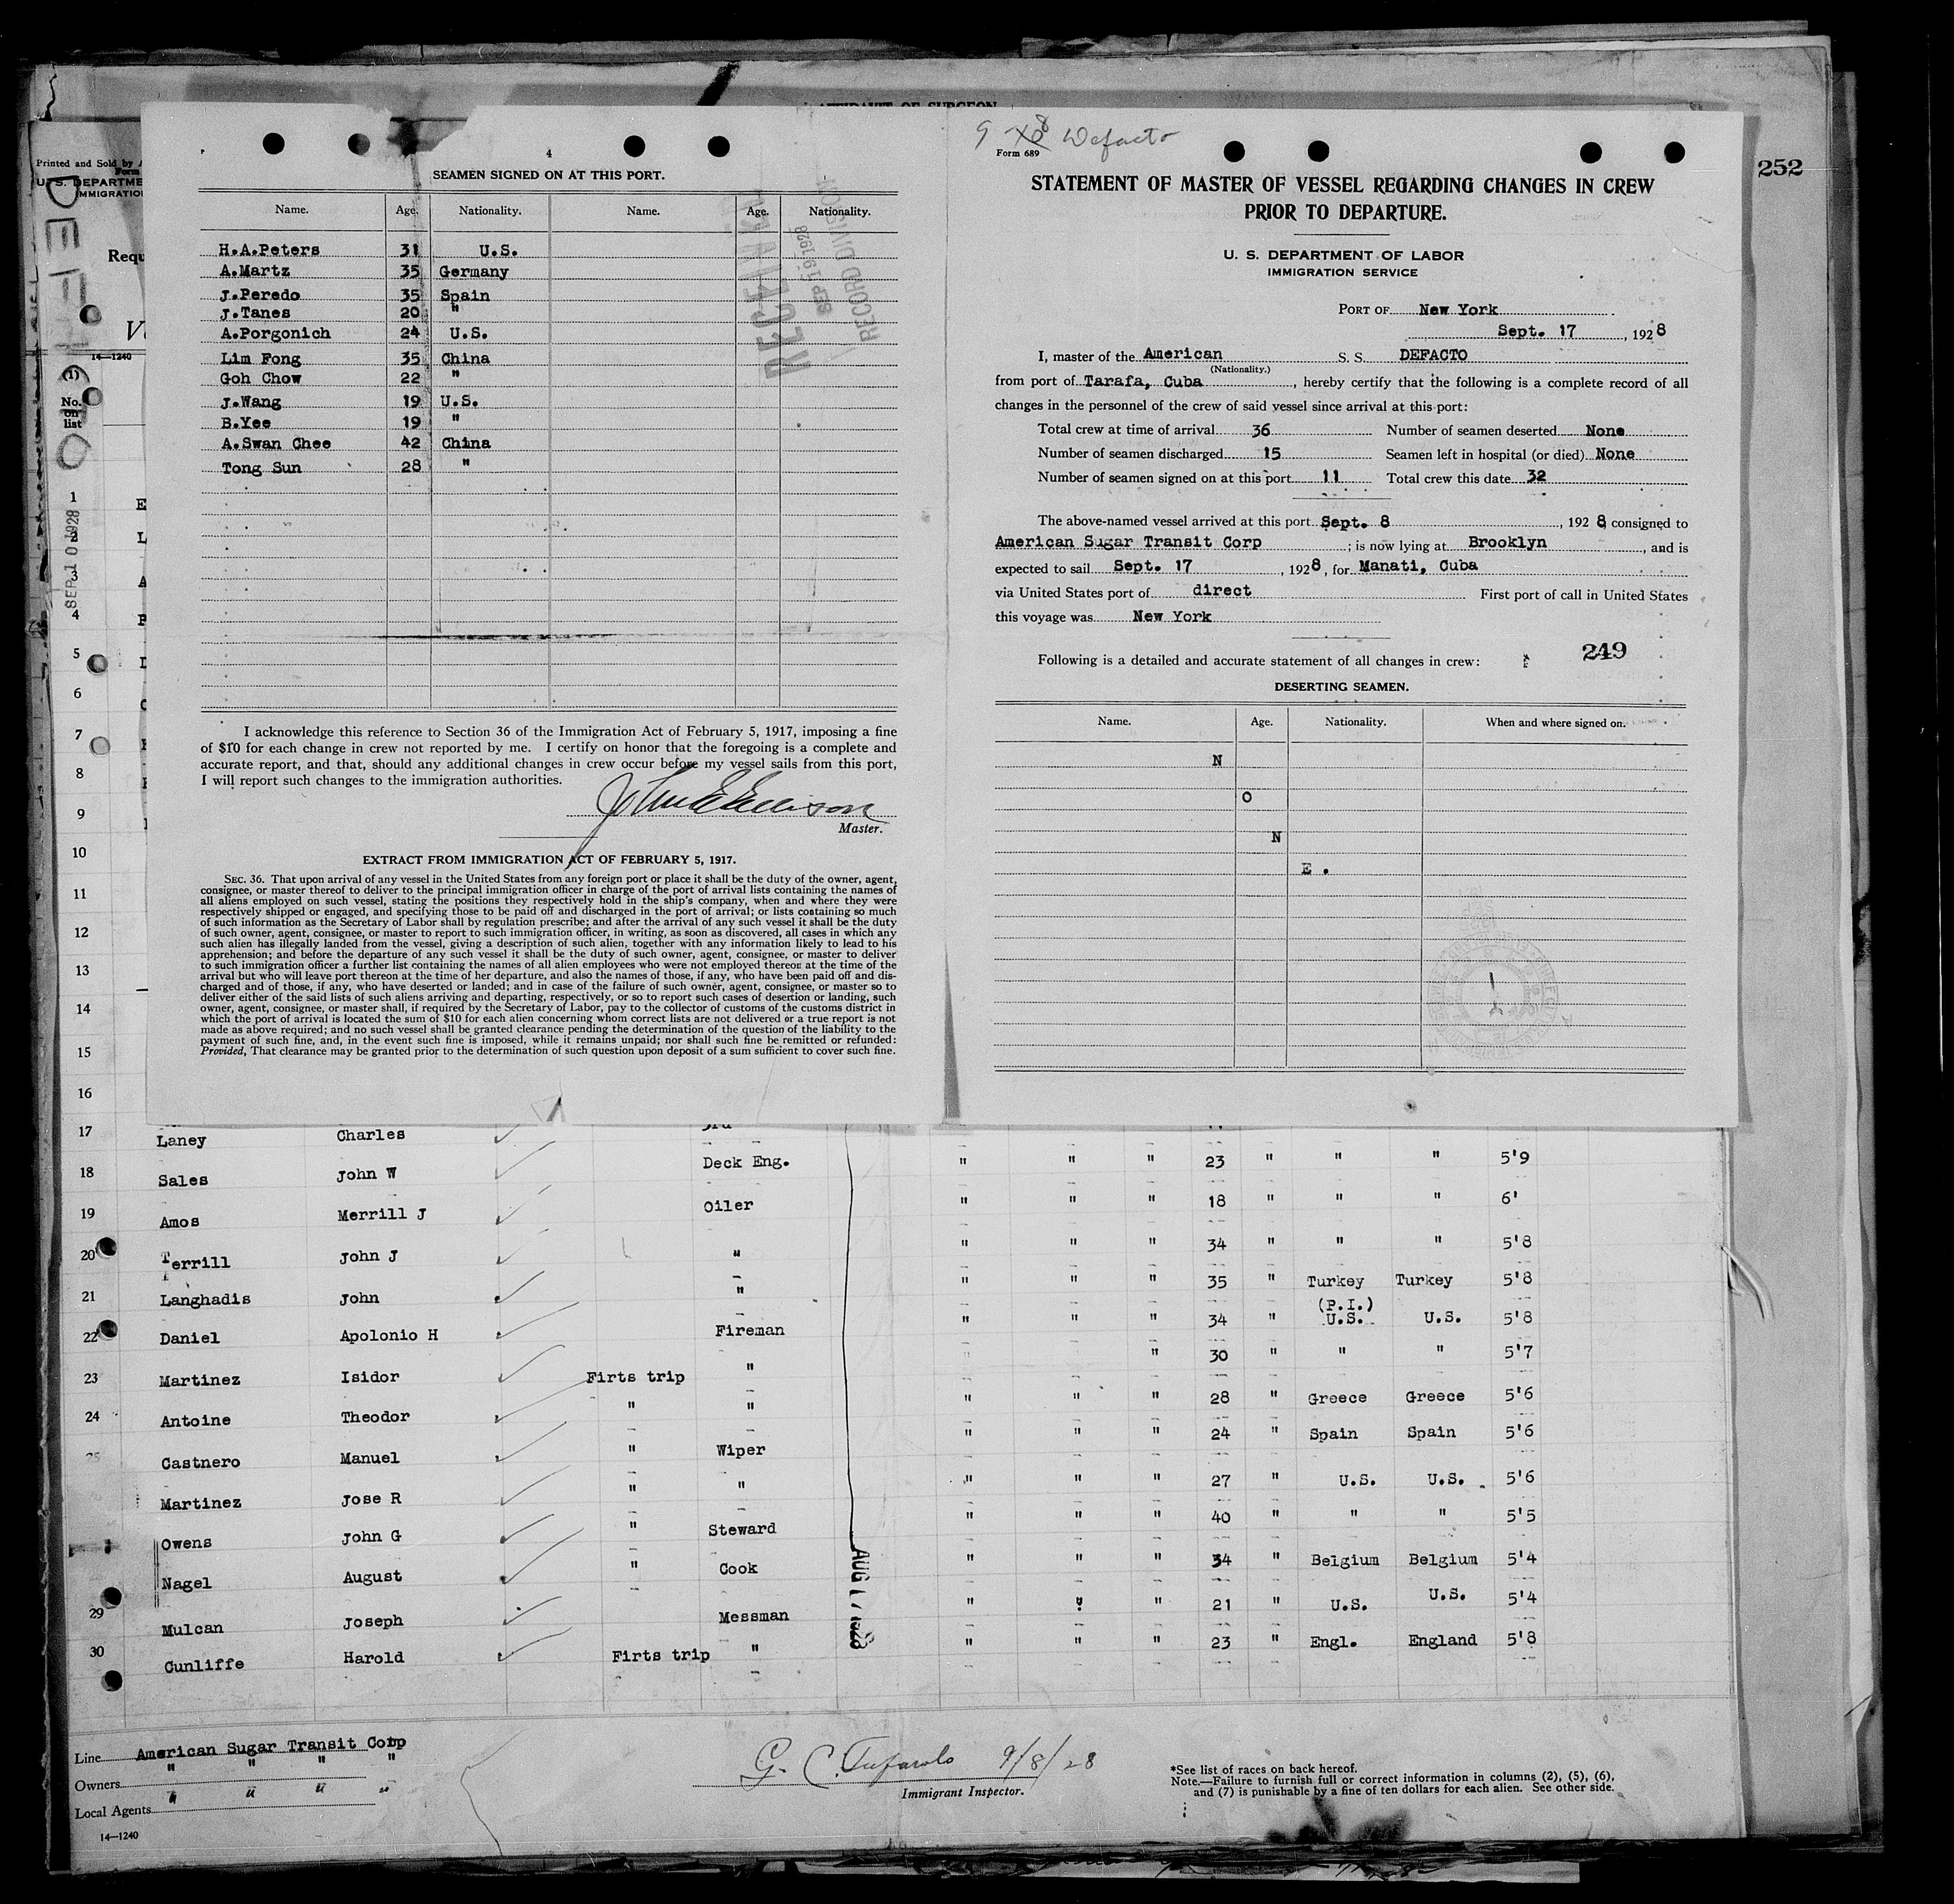 AFFIDAVIT OF SURGEON
252
Printed and Sold by
Form
U. S. DEPARTME
IMMIGRATIO
DEFACTO
Requ
14—1240
(1)
No.
on
list
SEP 10 1928
4
SEAMEN SIGNED ON AT THIS PORT.
Name. Age. Nationality. Name. Age. Nationality.
H.A.Peters 31 U.S.
A.Martz 35 Germany
J.Peredo 35 Spain
J.Tanes 20 "
A.Porgonich 24 U.S.
Lim Fong 35 China
Goh Chow 22 "
J.Wang 19 U.S.
B.Yee 19 "
A.Swan Chee 42 China
Tong Sun 28 "
RECEIVED
SEP 19 1928
RECORD DIVISION
I acknowledge this reference to Section 36 of the Immigration Act of February 5, 1917, imposing a fine
of $10 for each change in crew not reported by me. I certify on honor that the foregoing is a complete and
accurate report, and that, should any additional changes in crew occur before my vessel sails from this port,
I will report such changes to the immigration authorities.
Master.
EXTRACT FROM IMMIGRATION ACT OF FEBRUARY 5, 1917.
SEC. 36. That upon arrival of any vessel in the United States from any foreign port or place it shall be the duty of the owner, agent,
consignee, or master thereof to deliver to the principal immigration officer in charge of the port of arrival lists containing the names of
all aliens employed on such vessel, stating the positions they respectively hold in the ship's company, when and where they were
respectively shipped or engaged, and specifying those to be paid off and discharged in the port of arrival; or lists containing so much
of such information as the Secretary of Labor shall by regulation prescribe; and after the arrival of any such vessel it shall be the duty
of such owner, agent, consignee, or master to report to such immigration officer, in writing, as soon as discovered, all cases in which any
such alien has illegally landed from the vessel, giving a description of such alien, together with any information likely to lead to his
apprehension; and before the departure of any such vessel it shall be the duty of such owner, agent, consignee, or master to deliver
to such immigration officer a further list containing the names of all alien employees who were not employed thereon at the time of the
arrival but who will leave port thereon at the time of her departure, and also the names of those, if any, who have been paid off and dis-
charged and of those, if any, who have deserted or landed; and in case of the failure of such owner, agent, consignee, or master so to
deliver either of the said lists of such aliens arriving and departing, respectively, or so to report such cases of desertion or landing, such
owner, agent, consignee, or master shall, if required by the Secretary of Labor, pay to the collector of customs of the customs district in
which the port of arrival is located the sum of $10 for each alien concerning whom correct lists are not delivered or a true report is not
made as above required; and no such vessel shall be granted clearance pending the determination of the question of the liability to the
payment of such fine, and, in the event such fine is imposed, while it remains unpaid; nor shall such fine be remitted or refunded:
Provided, That clearance may be granted prior to the determination of such question upon deposit of a sum sufficient to cover such fine.
9 8 Defacto
Form 689
STATEMENT OF MASTER OF VESSEL REGARDING CHANGES IN CREW
PRIOR TO DEPARTURE.
U. S. DEPARTMENT OF LABOR
IMMIGRATION SERVICE
PORT OF New York
Sept. 17, 1928
I, master of the American S. S. DEFACTO
(Nationality.)
from port of Tarafa, Cuba, hereby certify that the following is a complete record of all
changes in the personnel of the crew of said vessel since arrival at this port:
Total crew at time of arrival 36 Number of seamen deserted None
Number of seamen discharged 15 Seamen left in hospital (or died) None
Number of seamen signed on at this port 11 Total crew this date 32
The above-named vessel arrived at this port Sept. 8, 1928 consigned to
American Sugar Transit Corp; is now lying at Brooklyn, and is
expected to sail Sept. 17, 1928, for Manati, Cuba
via United States port of direct First port of call in United States
this voyage was New York
Following is a detailed and accurate statement of all changes in crew:
249
DESERTING SEAMEN.
Name. Age. Nationality. When and where signed on.
N
O
N
E.
1
2
3
4
5
6
7
8
9
10
11
12
13
14
15
16
17 Laney Charles 3rd
18 Sales John W Deck Eng. " " " 23 " " " 5'9
19 Amos Merrill J Oiler " " " 18 " " " 6'
20 Terrill John J " " " " 34 " " " 5'8
21 Langhadis John " " " " 35 " Turkey Turkey 5'8
22 Daniel Apolonio H Fireman " " " 34 " (P.I.) U.S. U.S. 5'8
23 Martinez Isidor Firts trip " " 30 " " " 5'7
24 Antoine Theodor " " " " " 28 " Greece Greece 5'6
25 Castnero Manuel " Wiper " " " 24 " Spain Spain 5'6
Martinez Jose R " " " " " 27 " U.S. U.S. 5'6
Owens John G " Steward " " " 40 " " " 5'5
Nagel August " Cook " " " 34 " Belgium Belgium 5'4
29 Mulcan Joseph Messman " " " 21 " U.S. U.S. 5'4
30 Cunliffe Harold Firts trip " " " " 23 " Engl. England 5'8
AUG 17 1928
Line American Sugar Transit Corp
Owners " " " "
Local Agents " " " "
14—1240
9/8/28
Immigrant Inspector.
*See list of races on back hereof.
Note.—Failure to furnish full or correct information in columns (2), (5), (6),
and (7) is punishable by a fine of ten dollars for each alien. See other side.